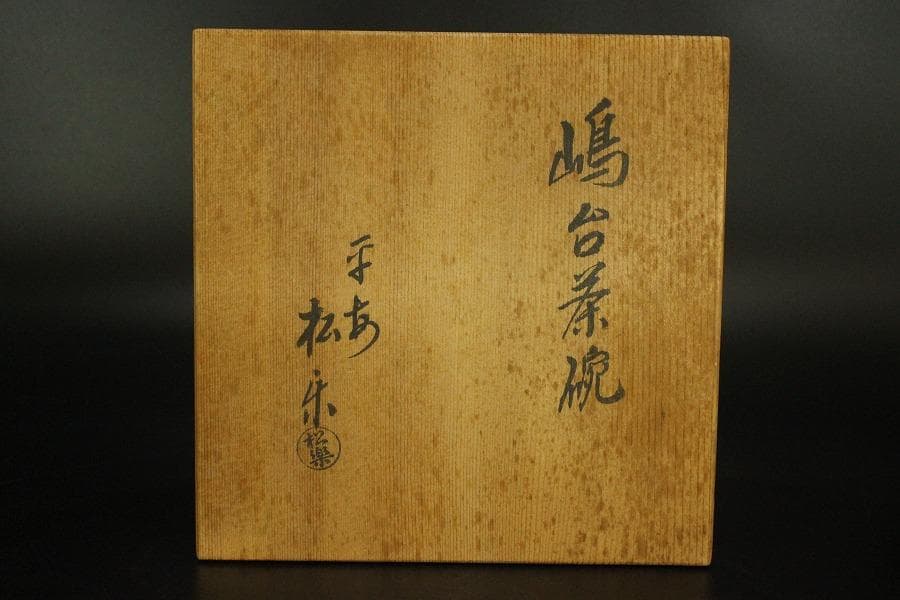 嶋台茶碗
平安
松楽
松樂